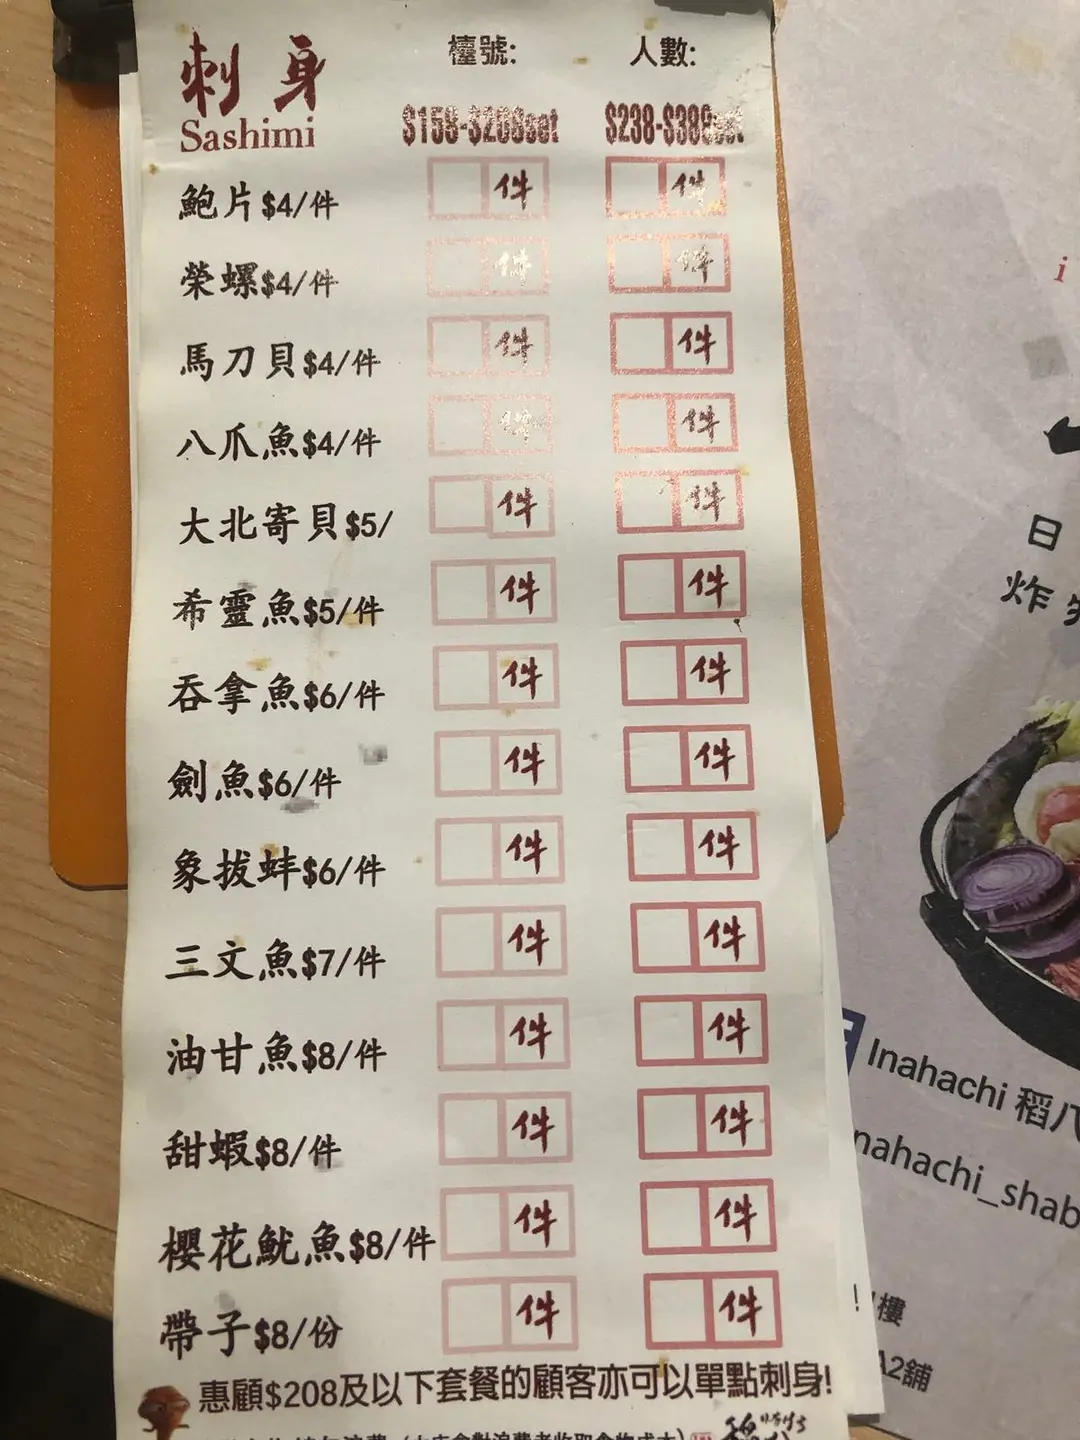 刺身 檯號: 人數:
Sashimi $158-$208set $238-$389set
鮑片$4/件 件 件
榮螺$4/件 件 件
馬刀貝$4/件 件 件
八爪魚$4/件 件 件
大北寄貝$5/ 件 件
希靈魚$5/件 件 件
吞拿魚$6/件 件 件
劍魚$6/件 件 件
象拔蚌$6/件 件 件
三文魚$7/件 件 件
油甘魚$8/件 件 件
甜蝦$8/件 件 件
櫻花魷魚$8/件 件 件
帶子$8/份 件 件
惠顧$208及以下套餐的顧客亦可以單點刺身!
i
日
炸
Inahachi 稻八
nahachi_shab
樓
A2舖